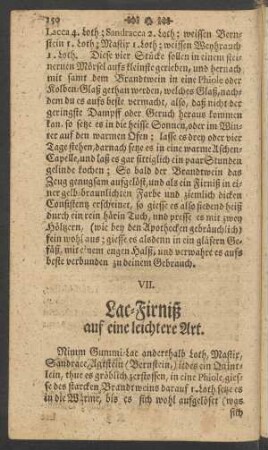 150
Lacca 4. Loth; Sandracca 2. Loth; weissen Bern-
stein 1. Loth; Mastix 1. Loth; weissen Weyhrauch
1. Loth. Diese vier Stücke sollen in einem stei-
nernen Mörsel aufs kleinste gerieben, und hernach
mit samt dem Brandtwein in eine Phiole oder
Kolben-Glaß gethan werden, welches Glaß, nach-
dem du es aufs beste vermacht, also, daß nicht der
geringste Dampf oder Geruch heraus kommen
kan, so setze es in die heisse Sonnen, oder im Win-
ter auf den warmen Ofen; lasse es drey oder vier
Tage stehen, darnach setze es in eine warme Aschen-
Capelle, und laß es gar sittiglich ein paar Stunden
gelinde kochen; So bald der Brandtwein das
Zeug genugsam aufgelöst, und als ein Firniß in ei-
ner gelb-braunlichten Farbe und ziemlich dicken
Consistentz erscheinet, so giesse es also siedend heiß
durch ein rein härin Tuch, und presse es mit zwey
Höltzern, (wie bey den Apothecken gebräuchlich)
fein wohl aus; giesse es alsdenn in ein gläsern Ge-
fäß, mit einem engen Halß, und verwahre es aufs
beste verbunden zu deinem Gebrauch.
VII.
Lac-Firniß
auf eine leichtere Art.
Nimm Gummi-Lac anderthalb Loth, Mastix,
Sandrac, Agtstein (Bernstein,) jedes ein Quint-
lein, thue es gröblich zerstossen, in eine Phiole, gies-
se des starcken Brandtweins darauf 1. Loth setze es
in die Wärme, bis es sich wohl aufgelöset (was
sich